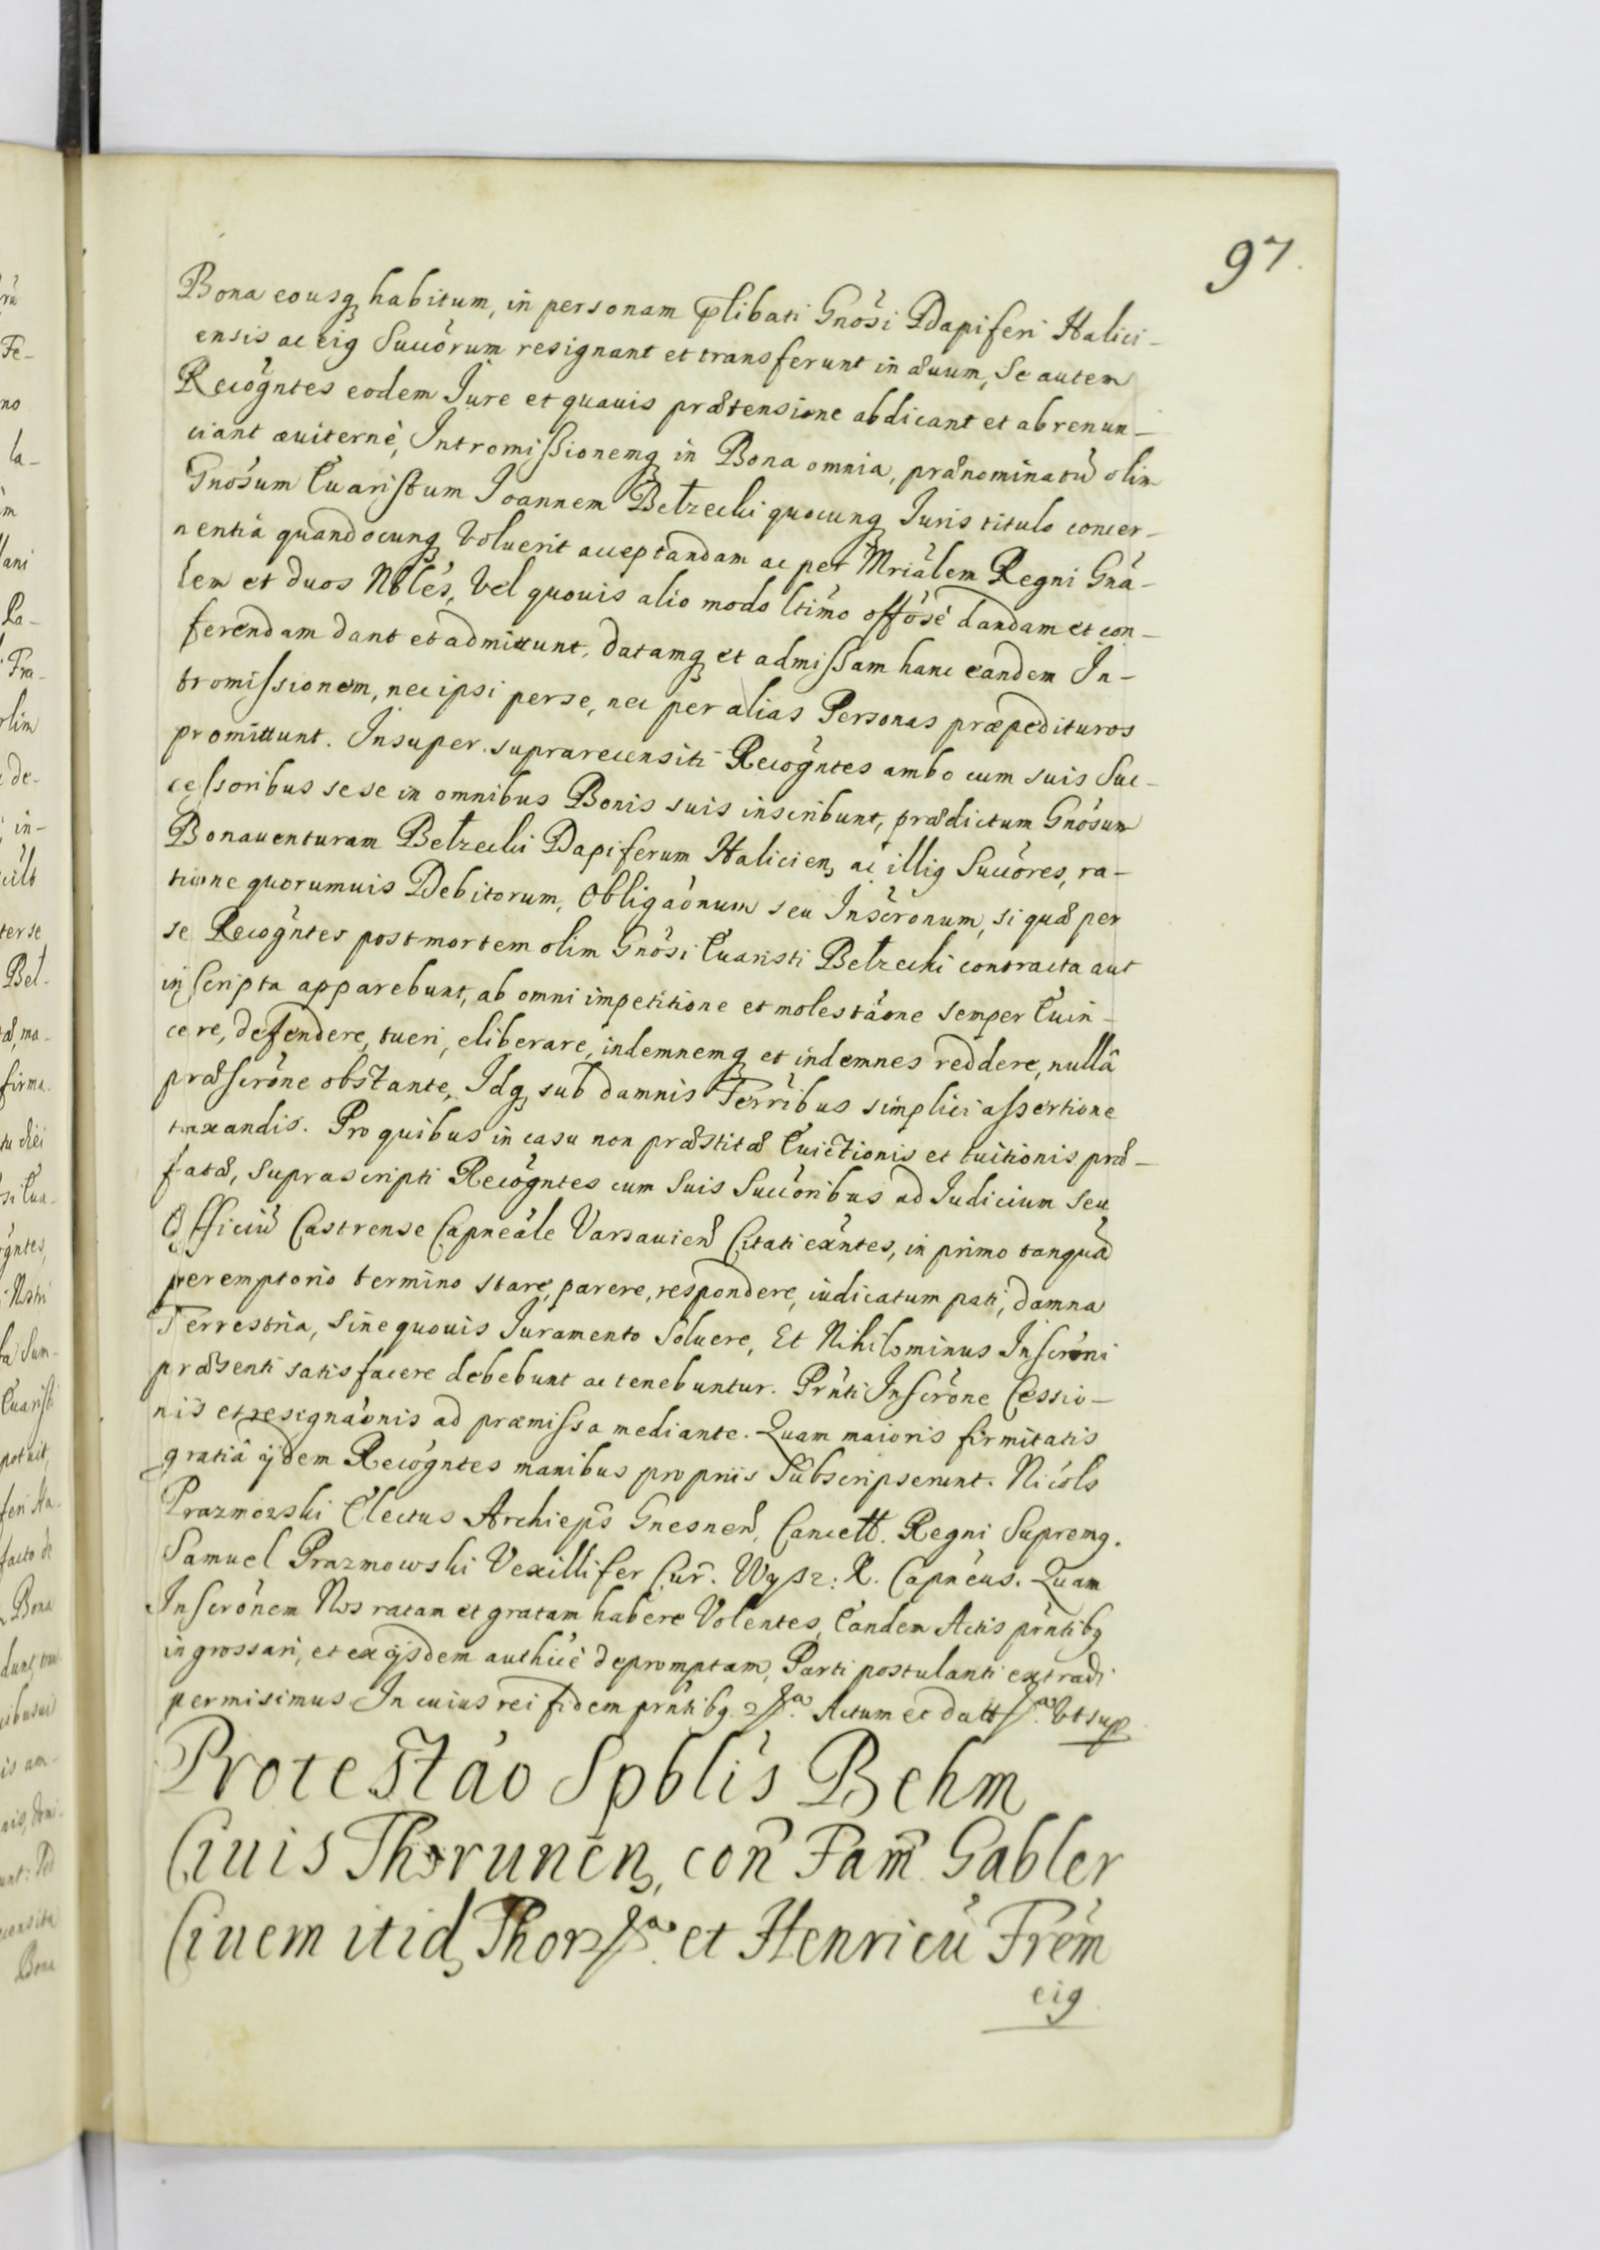 97.
Bona eousq habitum, in personam p̱libati Gnosi Dapiferi Halici-
ensis ac eig Succorum resignant et transferunt in æuum, Se autem
Recogntes eodem Jure et quauis prætensione abdicant et abrenun-
ciant æuiternè, Intromissionemq in Bona omnia, prænominatū olim
Gnosum Euaristum Joannem Bełzecki quocunq Juris titulo concer-
nentia quandocunq Voluerit acceptandam ac per Mrialem Regni Gna-
lem et duos Nbles, Vel quouis alio modo ltimo offose dandam et con-
ferendam dant et admittunt, datamq et admissam hanc eandem In-
tromissionem, nec ipsi per se, nec per alias Personas præpedituros
promittunt. Insuper suprarecensiti Recogntes ambo cum suis Suc-
cessoribus sese in omnibus Bonis suis inscribunt, prædictum Gnosum
Bonauenturam Bełzecki Dapiferum Halicien, ac illig Succores, ra-
tione quorumuis Debitorum, Obligaonum seu Inscronum, si quæ per
se Recogntes post mortem olim Gnosi Euaristi Bełzecki contracta aut
inscripta apparebunt, ab omni impetitione et molestaone semper Euin-
cere, defendere, tueri, eliberare, indemnemq et indemnes reddere, nullâ
præscrone obstante, Idq sub damnis Terribus simplici assertione
taxandis. Pro quibus in casu non præstitæ Euictionis et tuitionis præ-
fatæ, Suprascripti Recogntes cum Suis Succoribus ad Judicium seu
Officiū Castrense Capneale Varsauien Citati exntes, in primo tanquā
peremptorio termino stare, parere, respondere, iudicatum pati, damna
Terrestria, Sine quouis Juramento Soluere, Et Nihilominus Inscroni
præsenti satisfacere debebunt ac tenebuntur. Prnti Inscrone Cessio-
nis et resignaonis ad præmissa mediante. Quam maioris firmitatis
gratiâ ijdem Recogntes manibus propriis Subscripserunt. Nicols
Prazmowski Electus Archieps Gnesnen, Cancell. Regni Supremg.
Samuel Prazmowski Vexillifer Cur. Wysz: R. Capneus. Quam
Inscronem Nos ratam et gratam habere Volentes, Eandem Actis prntibg
ingrossari, et ex ijsdem authice depromptam, Parti postulanti extradi
permisimus. In cuius rei fidem prntibg Actum et datt Vt sup
Protestao Spblis Behm
Ciuis Thorunen, con Fam Gabler
Ciuem itid Thor et Henricū Frem
eig